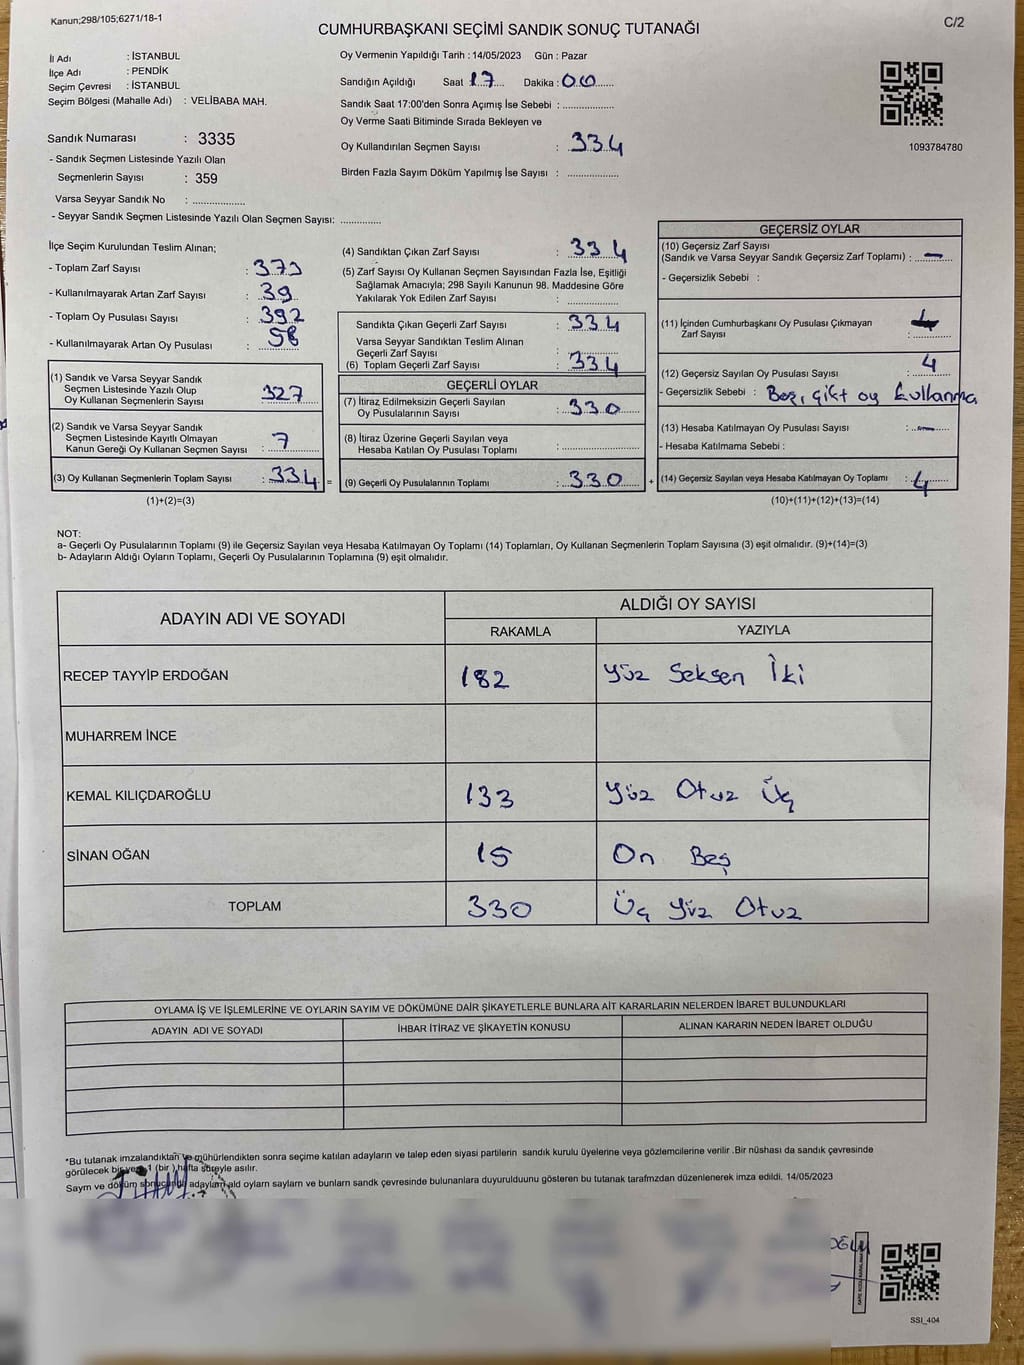 Kanun;298/105;6271/18-1
C/2
CUMHURBAŞKANI SEÇİMİ SANDIK SONUÇ TUTANAĞI
İl Adı : İSTANBUL
İlçe Adı : PENDİK
Seçim Çevresi : İSTANBUL
Seçim Bölgesi (Mahalle Adı) : VELİBABA MAH.
Oy Vermenin Yapıldığı Tarih : 14/05/2023 Gün : Pazar
Sandığın Açıldığı Saat 17 Dakika : 00
Sandık Saat 17:00'den Sonra Açımış İse Sebebi : ..................
Oy Verme Saati Bitiminde Sırada Bekleyen ve
Oy Kullandırılan Seçmen Sayısı : 334
Birden Fazla Sayım Döküm Yapılmış İse Sayısı : ..................
1093784780
Sandık Numarası : 3335
- Sandık Seçmen Listesinde Yazılı Olan
Seçmenlerin Sayısı : 359
Varsa Seyyar Sandık No : ..................
- Seyyar Sandık Seçmen Listesinde Yazılı Olan Seçmen Sayısı: ..............
İlçe Seçim Kurulundan Teslim Alınan;
- Toplam Zarf Sayısı : 373
- Kullanılmayarak Artan Zarf Sayısı : 39
- Toplam Oy Pusulası Sayısı : 392
- Kullanılmayarak Artan Oy Pusulası : 58
(1) Sandık ve Varsa Seyyar Sandık
Seçmen Listesinde Yazılı Olup
Oy Kullanan Seçmenlerin Sayısı : 327
(2) Sandık ve Varsa Seyyar Sandık
Seçmen Listesinde Kayıtlı Olmayan
Kanun Gereği Oy Kullanan Seçmen Sayısı : 7
(3) Oy Kullanan Seçmenlerin Toplam Sayısı : 334 =
(1)+(2)=(3)
(4) Sandıktan Çıkan Zarf Sayısı : 334
(5) Zarf Sayısı Oy Kullanan Seçmen Sayısından Fazla İse, Eşitliği
Sağlamak Amacıyla; 298 Sayılı Kanunun 98. Maddesine Göre
Yakılarak Yok Edilen Zarf Sayısı : ..................
Sandıkta Çıkan Geçerli Zarf Sayısı : 334
Varsa Seyyar Sandıktan Teslim Alınan
Geçerli Zarf Sayısı : ..................
(6) Toplam Geçerli Zarf Sayısı : 334
GEÇERLİ OYLAR
(7) İtiraz Edilmeksizin Geçerli Sayılan
Oy Pusulalarının Sayısı : 330
(8) İtiraz Üzerine Geçerli Sayılan veya
Hesaba Katılan Oy Pusulası Toplamı : ..................
(9) Geçerli Oy Pusulalarının Toplamı : 330 +
GEÇERSİZ OYLAR
(10) Geçersiz Zarf Sayısı
(Sandık ve Varsa Seyyar Sandık Geçersiz Zarf Toplamı) : —
- Geçersizlik Sebebi :
(11) İçinden Cumhurbaşkanı Oy Pusulası Çıkmayan
Zarf Sayısı :
(12) Geçersiz Sayılan Oy Pusulası Sayısı : 4
- Geçersizlik Sebebi : Boş, çift oy kullanma
(13) Hesaba Katılmayan Oy Pusulası Sayısı : —
- Hesaba Katılmama Sebebi :
(14) Geçersiz Sayılan veya Hesaba Katılmayan Oy Toplamı : 4
(10)+(11)+(12)+(13)=(14)
NOT:
a- Geçerli Oy Pusulalarının Toplamı (9) ile Geçersiz Sayılan veya Hesaba Katılmayan Oy Toplamı (14) Toplamları, Oy Kullanan Seçmenlerin Toplam Sayısına (3) eşit olmalıdır. (9)+(14)=(3)
b- Adayların Aldığı Oyların Toplamı, Geçerli Oy Pusulalarının Toplamına (9) eşit olmalıdır.
ADAYIN ADI VE SOYADI
ALDIĞI OY SAYISI
RAKAMLA YAZIYLA
RECEP TAYYİP ERDOĞAN 182 Yüz Seksen İki
MUHARREM İNCE
KEMAL KILIÇDAROĞLU 133 Yüz Otuz Üç
SİNAN OĞAN 15 On Beş
TOPLAM 330 Üç Yüz Otuz
OYLAMA İŞ VE İŞLEMLERİNE VE OYLARIN SAYIM VE DÖKÜMÜNE DAİR ŞİKAYETLERLE BUNLARA AİT KARARLARIN NELERDEN İBARET BULUNDUKLARI
ADAYIN ADI VE SOYADI İHBAR İTİRAZ VE ŞİKAYETİN KONUSU ALINAN KARARIN NEDEN İBARET OLDUĞU
*Bu tutanak imzalandıktan ve mühürlendikten sonra seçime katılan adayların ve talep eden siyasi partilerin sandık kurulu üyelerine veya gözlemcilerine verilir .Bir nüshası da sandık çevresinde
görülecek bir yere 1 (bir ) hafta süreyle asılır.
Sayım ve döküm sonucunda adayların ald oyların saylarn ve bunların sandk çevresinde bulunanlara duyurulduunu gösteren bu tutanak tarafmzdan düzenlenerek imza edildi. 14/05/2023
SSİ_404